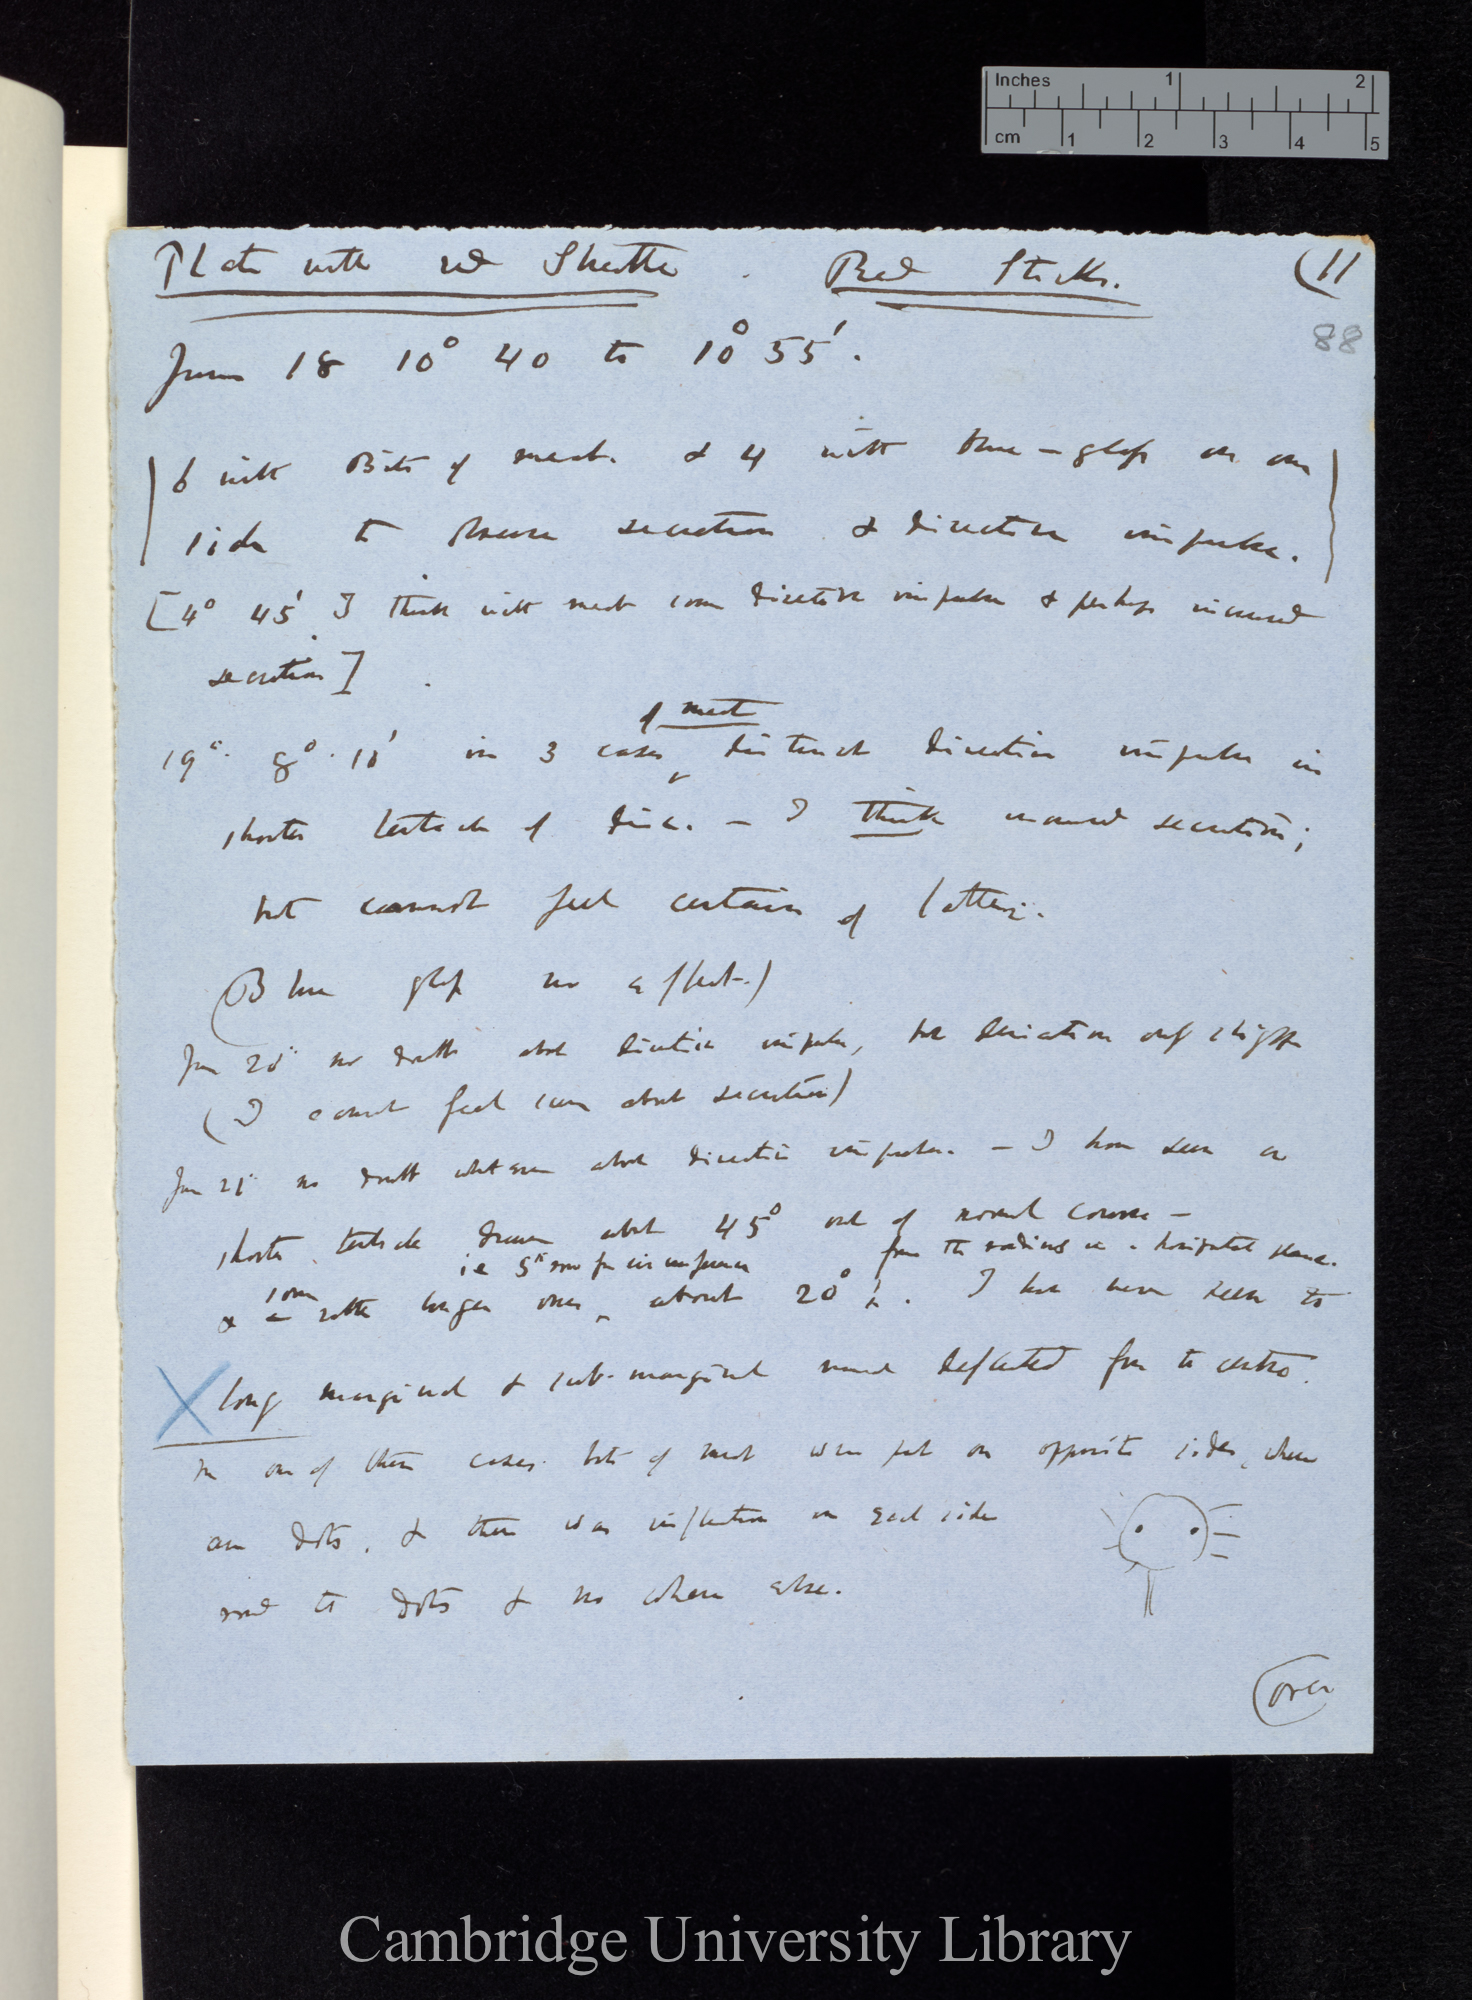 Inches 1 2
cm 1 2 3 4 5
Plate with red Sheath . Red Sticks. (11
88
June 18 10° 40 to 10° 55'.
6 with Bits of meat. & 4 with blue-glass on one
side to observe secretion & direction impulse.
[4° 45' I think with meat some direction impulse & perhaps increased
secretion]
of meat
19th. 8°. 10' in 3 cases distinct direction impulse in
shorter tentacle of disc. — I think increased secretion;
but cannot feel certain of latter.
(Blue glass no effect.)
Jun 20 no doubt about direction impulse, but deviation only slight
(I cannot feel sure about secretion)
Jun 21 no doubt whatever about direction impulse. — I have seen a
shorter tentacle drawn about 45° out of normal course —
ie 5th row from circumference from the radius in a horizontal plane.
& some rather longer ones, about 20°. I have never seen the
X long marginal & sub-marginal ones deflected from the centre.
In one of these cases bits of meat were put on opposite sides, where
are dots, & there was inflection on each side
round the dots & no where else.
(over
Cambridge University Library